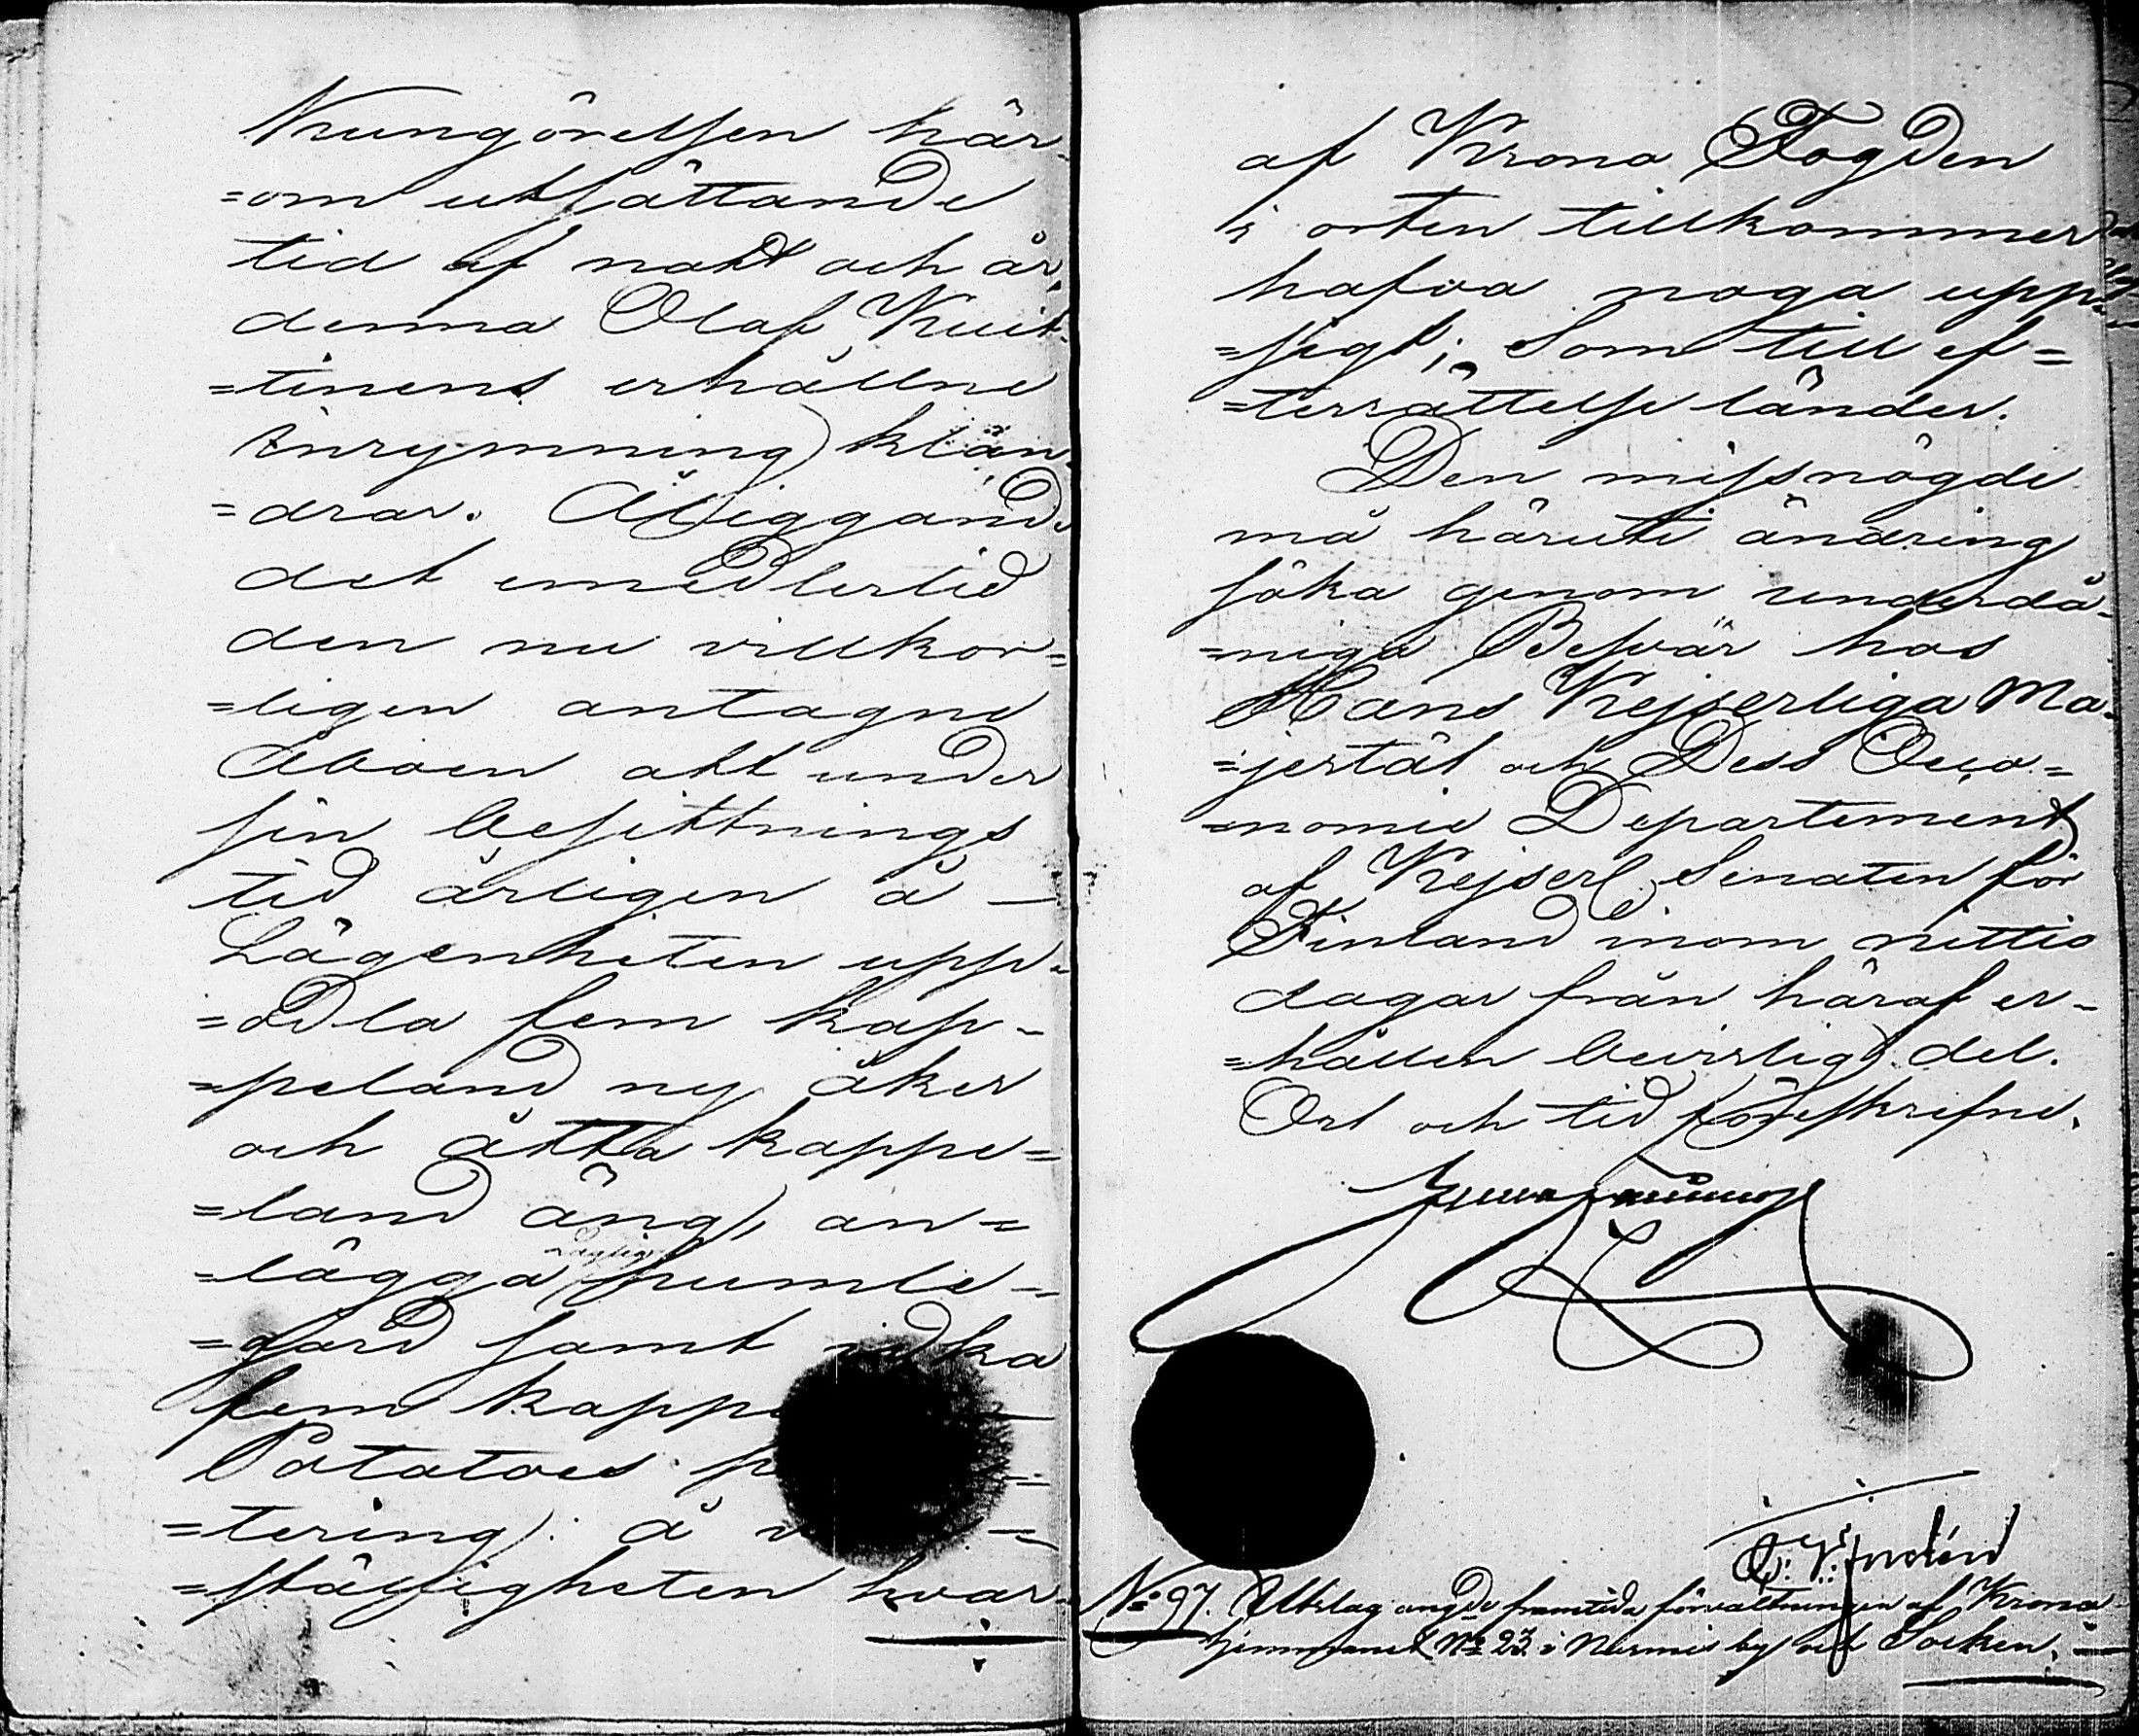 Kungörelsen här-
=om utsättande
tid af natt och år,
denna Olof Kuit-
=tinens erhållne
inrymning klan-
=drar. Åliggande
det emedlertid
den nu villkor=
=ligen antagne
Åboen att under
sin besittnings
tid årligen å -
Lägenheten upp-
=odla fem kap-
=peland ny åker
och åtta kappe=
=land äng, an=
=lägga laglig humle-
=gård samt idka
fem kapp
Potatoes p
=tering: å
=ställigheten hvar-
af Krono Fogden
i orten tillkommer
hafva noga upp-
=sigt; Som till ef=
=terrättelse länder.
Den missnögde
må häruti ändring
söka genom underdå-
=niga Besvär hos
Hans Kejserliga Ma-
=jestät och Dess Oeco=
=nomie Departement
af Kejserl. Senaten för
Finland inom nittio
dagar från häraf er-
=hållen bevislig del.
Ort och tid förestkrefne.
No 97. Utslag angde framtida förvaltningen af Krono
hemmanet No 23 i Nurmis by och Socken.